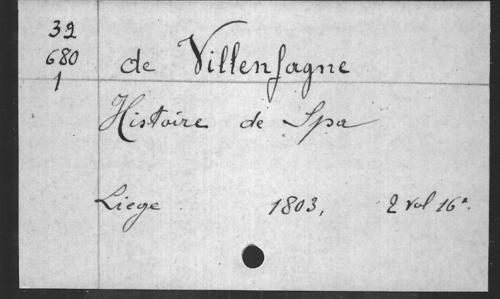 32
680
1
de Villenfagne
Histoire de Spa
Liege 1803, 2 vol 16°.